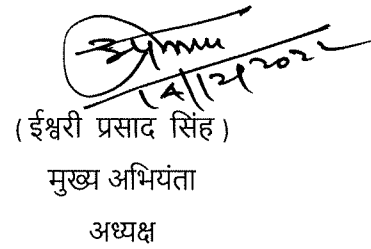 14/12/2022
( ईश्वरी प्रसाद सिंह )
मुख्य अभियंता
अध्यक्ष